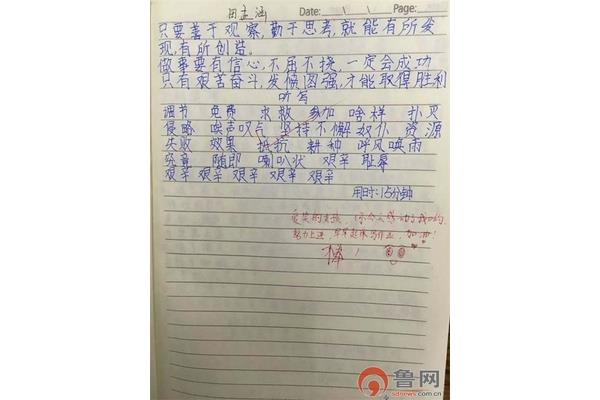 田孟涵 Date: \ \ Page:
只要善于观察,勤于思考,就能有所发
现,有所创造。
做事要有信心,不屈不挠,一定会成功
只有艰苦奋斗,发愤图强,才能取得胜利
听写
调节 免费 求救 参加 啥样 扑灭
侵略 唉声叹气 坚持不懈 奴仆 资源
失败 效果 抵抗 耕种 呼风唤雨
究竟 随即 喇叭状 艰辛 耻辱
艰辛 艰辛 艰辛 艰辛 艰辛
用时:15分钟
爱笑的女孩
努力上进,早早起床写作业,加油!
棒!
鲁网
sdnews.com.cn